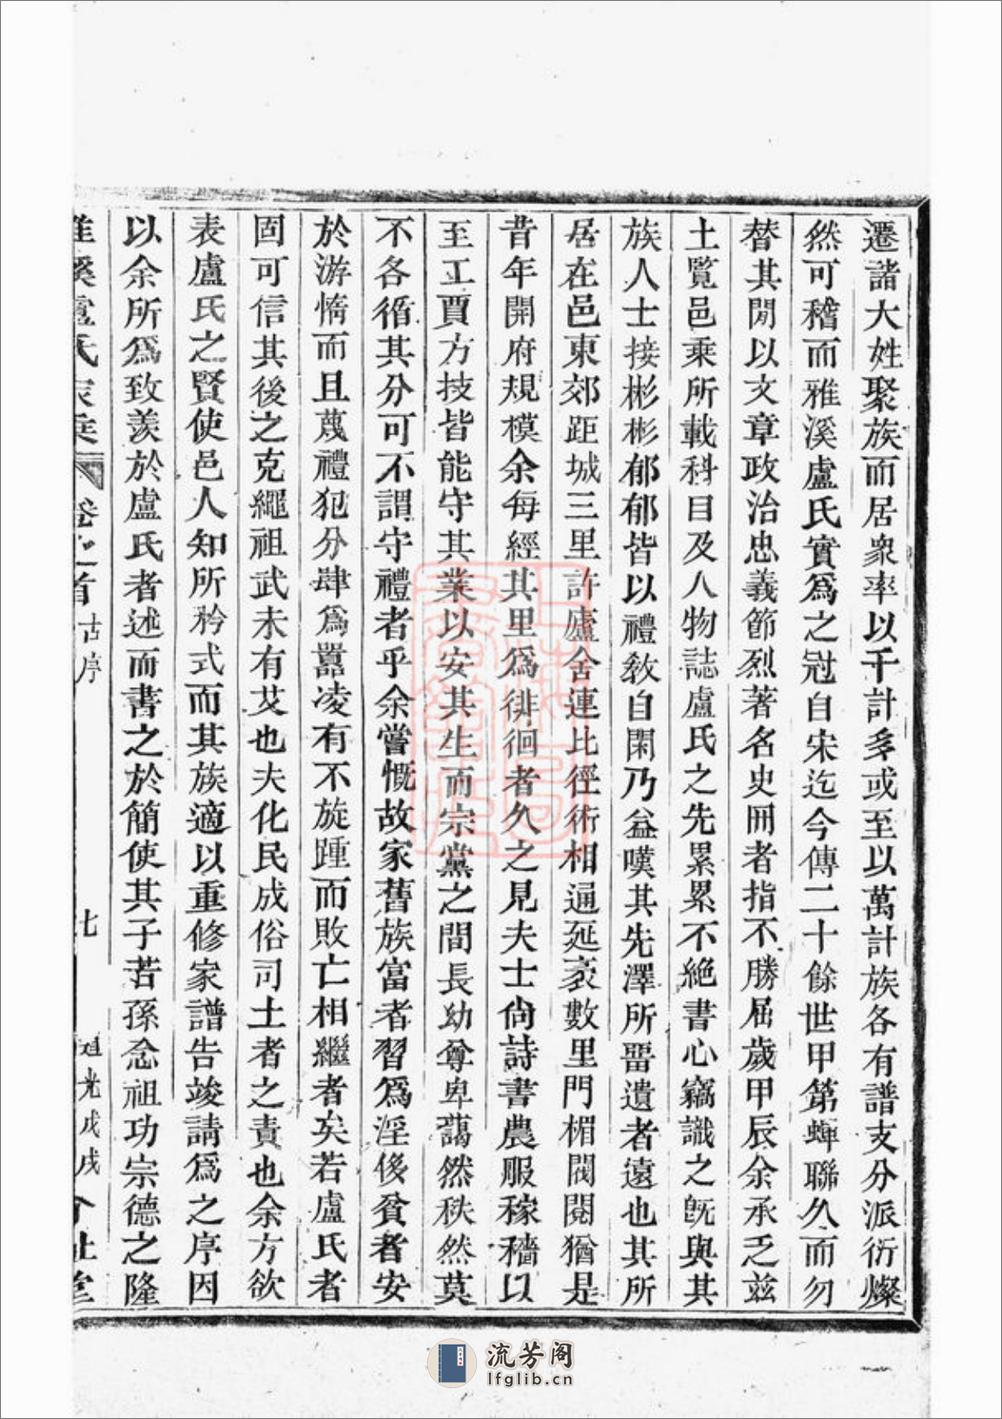 遷諸大姓聚族而居衆率以千計多或至以萬計族各有譜支分派衍燦
然可稽而雅溪盧氏實爲之冠自宋迄今傳二十餘世甲第蟬聯久而勿
替其閒以文章政治忠義節烈著名史冊者指不勝屈歲甲辰余承乏茲
土覽邑乘所載科目及人物誌盧氏之先累累不絶書心竊識之旣與其
族人士接彬彬郁郁皆以禮敎自閑乃益嘆其先澤所畱遺者遠也其所
居在邑東郊距城三里許廬舍連比徑術相通延袤數里門楣閥閱猶是
昔年開府規模余每經其里爲徘徊者久之見夫士尙詩書農服稼穡以
至工賈方技皆能守其業以安其生而宗黨之間長幼尊卑藹然秩然莫
不各循其分可不謂守禮者乎余嘗慨故家舊族富者習爲淫侈貧者安
於游惰而且蔑禮犯分肆爲囂凌有不旋踵而敗亡相繼者矣若盧氏者
固可信其後之克繩祖武未有艾也夫化民成俗司土者之責也余方欲
表盧氏之賢使邑人知所矜式而其族適以重修家譜告竣請爲之序因
以余所爲致羨於盧氏者述而書之於簡使其子若孫念祖功宗德之隆
雅溪盧氏家乘 卷之首 古序 七 道光戊戌
流芳阁
lfglib.cn